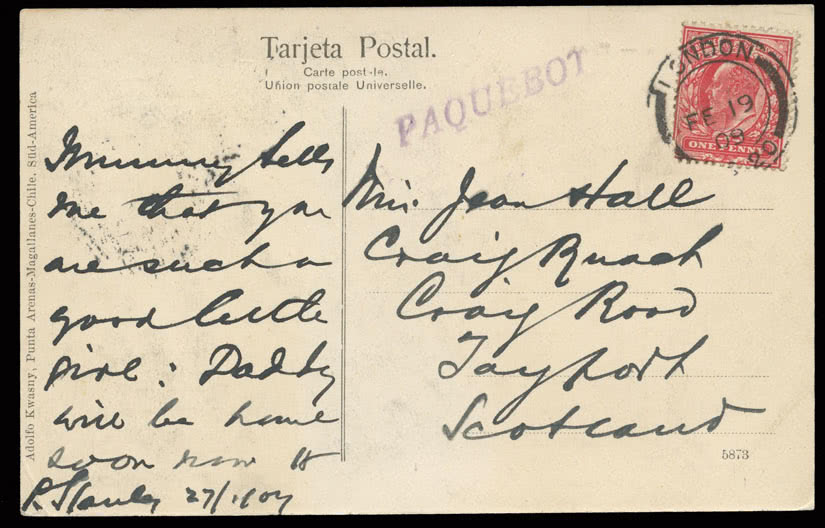 Tarjeta Postal.
Carte postale.
Union postale Universelle.
PAQUEBOT
LONDON
FE 19
09
ONE PENNY
Adolfo Kwasny, Punta Arenas-Magallanes-Chile. Süd-America
Mummy tells
me that you
are such a
good little
girl: Daddy
will be home
soon now
P. Stanley 27/1/09
Miss Jean Hall
Craig Ruach
Craig Road
Tayport
Scotland
5873